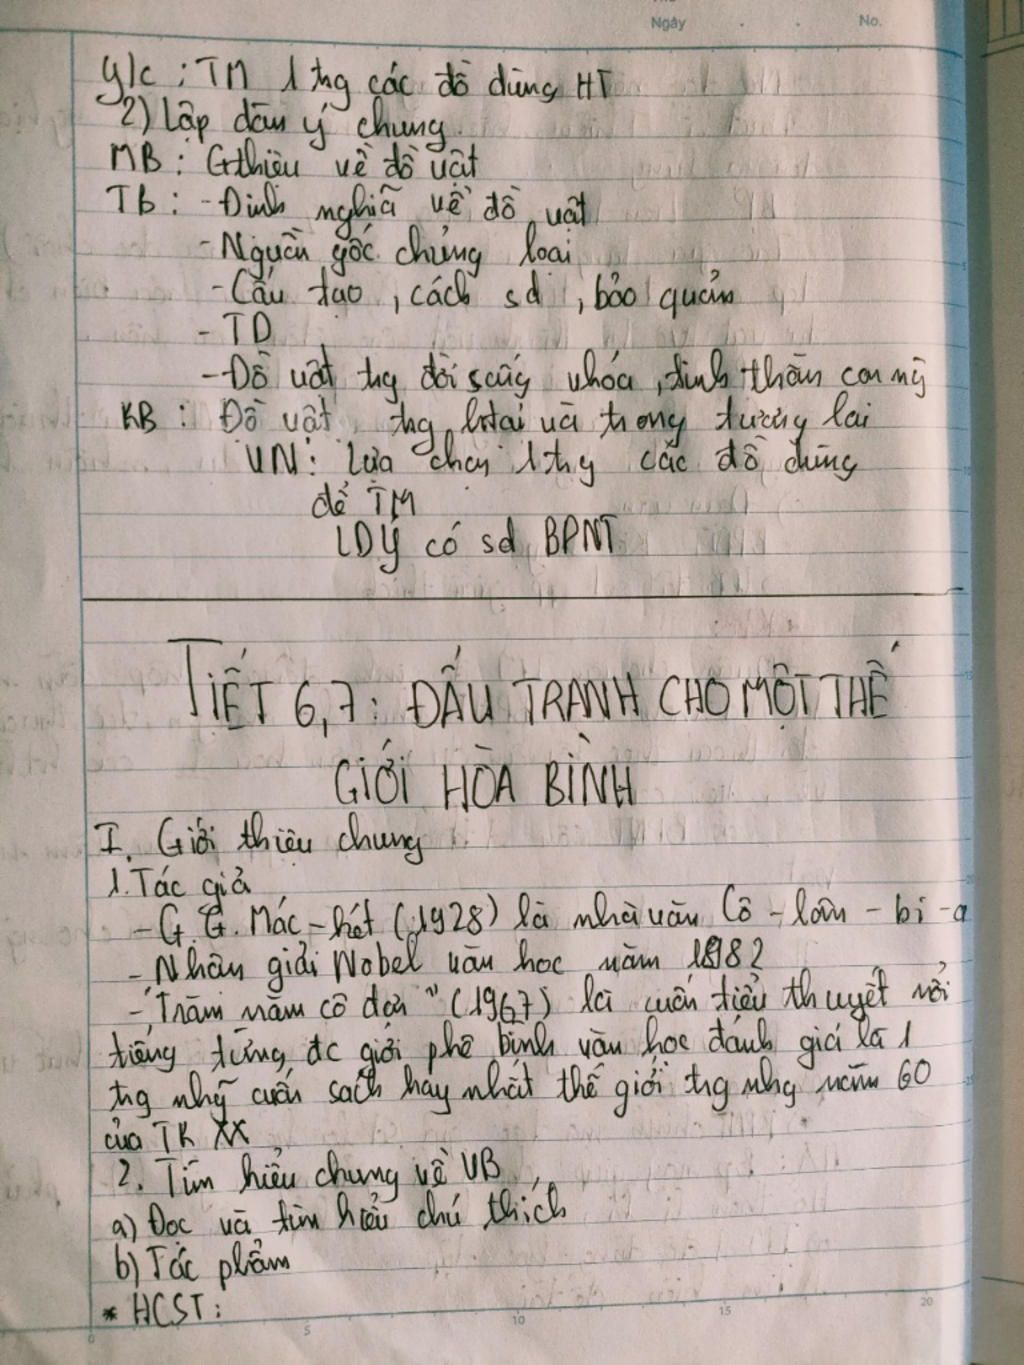 Ngày
No.
Y/c : TM 1 tng các đồ dùng HT
2) Lập dàn ý chung
MB : Gthiệu về đồ vật
TB : - Định nghĩa về đồ vật
- Nguồn gốc chủng loại
- Cấu tạo, cách sd, bảo quản
- TD
- Đồ vật tng đời sống vhóa, tinh thần con ng
KB : Đồ vật tng htại và trong tương lai
VN: Lựa chọn 1 tng các đồ dùng
để TM
LDY có sd BPNT
TIẾT 6,7: ĐẤU TRANH CHO MỘT THẾ
GIỚI HÒA BÌNH
I. Giới thiệu chung
1. Tác giả
- G.G. Mác-két (1928) là nhà văn Cô-lôm-bi-a
- Nhận giải Nobel văn học năm 1982
- "Trăm năm cô đơn" (1967) là cuốn tiểu thuyết nổi
tiếng từng đc giới phê bình văn học đánh giá là 1
tng nhg cuốn sách hay nhất thế giới tng nhg năm 60
của TK XX
2. Tìm hiểu chung về VB
a) Đọc và tìm hiểu chú thích
b) Tác phẩm
* HCST:
0 5 10 15 20